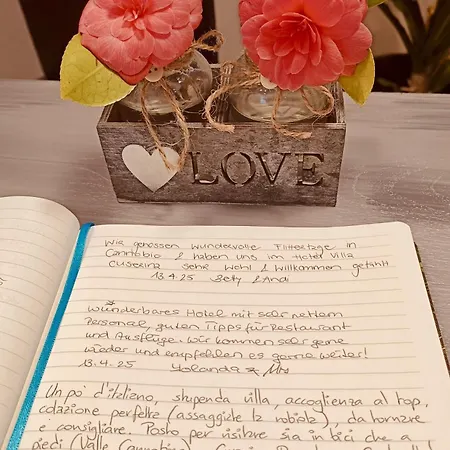 LOVE
Wir genossen wundervolle Flittertage in
Cannobio & haben uns im Hotel Villa
sehr wohl & willkommen gefühlt
13.4.25 Betty & Andi
Wunderbares Hotel mit sehr nettem
Personal, guten Tipps für Restaurant
und Ausflüge. Wir kommen sehr gerne
wieder und empfehlen es gerne weiter!
13.4.25 Yolanda &
Un po' d'italiano, stupenda villa, accoglienza al top,
colazione perfetta (assaggiate la robiola), da tornare
e consigliare. Posto per visitare sia in bici che a
piedi (Valle